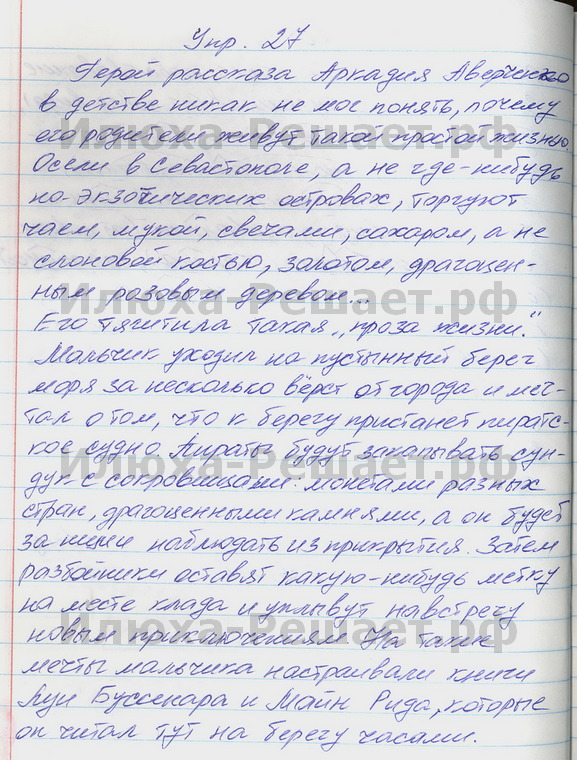 Упр. 27.
Герой рассказа Аркадия Аверченко
в детстве никак не мог понять, почему
его родители живут такой простой жизнью.
Осели в Севастополе, а не где-нибудь
на экзотических островах, торгуют
чаем, мукой, свечами, сахаром, а не
слоновой костью, золотом, драгоцен-
ным розовым деревом...
Его тяготила такая „проза жизни."
Мальчик уходил на пустынный берег
моря за несколько вёрст от города и меч-
тал о том, что к берегу пристанет пиратс-
кое судно. Пираты будут закапывать сун-
дук с сокровищами: монетами разных
стран, драгоценными камнями, а он будет
за ними наблюдать из прикрытия. Затем
разбойники оставят какую-нибудь метку
на месте клада и уплывут навстречу
новым приключениям. На такие
мечты мальчика настраивали книги
Луи Буссенара и Майн Рида, которые
он читал тут на берегу часами.
Илюха-Решает.рф
Илюха-Решает.рф
Илюха-Решает.рф
Илюха-Решает.рф